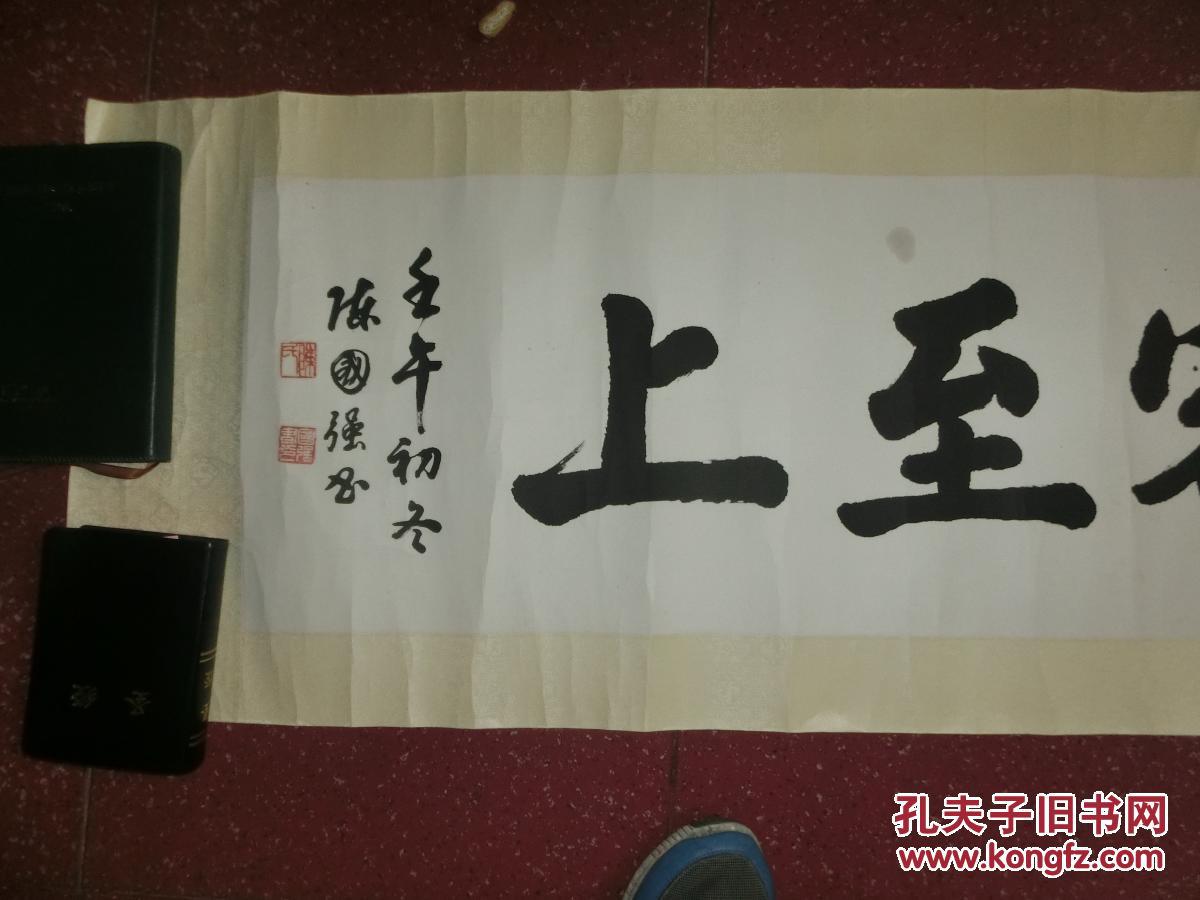 至上
壬午初冬
陈國强书
陳氏
圣经
孔夫子旧书网
www.kongfz.com